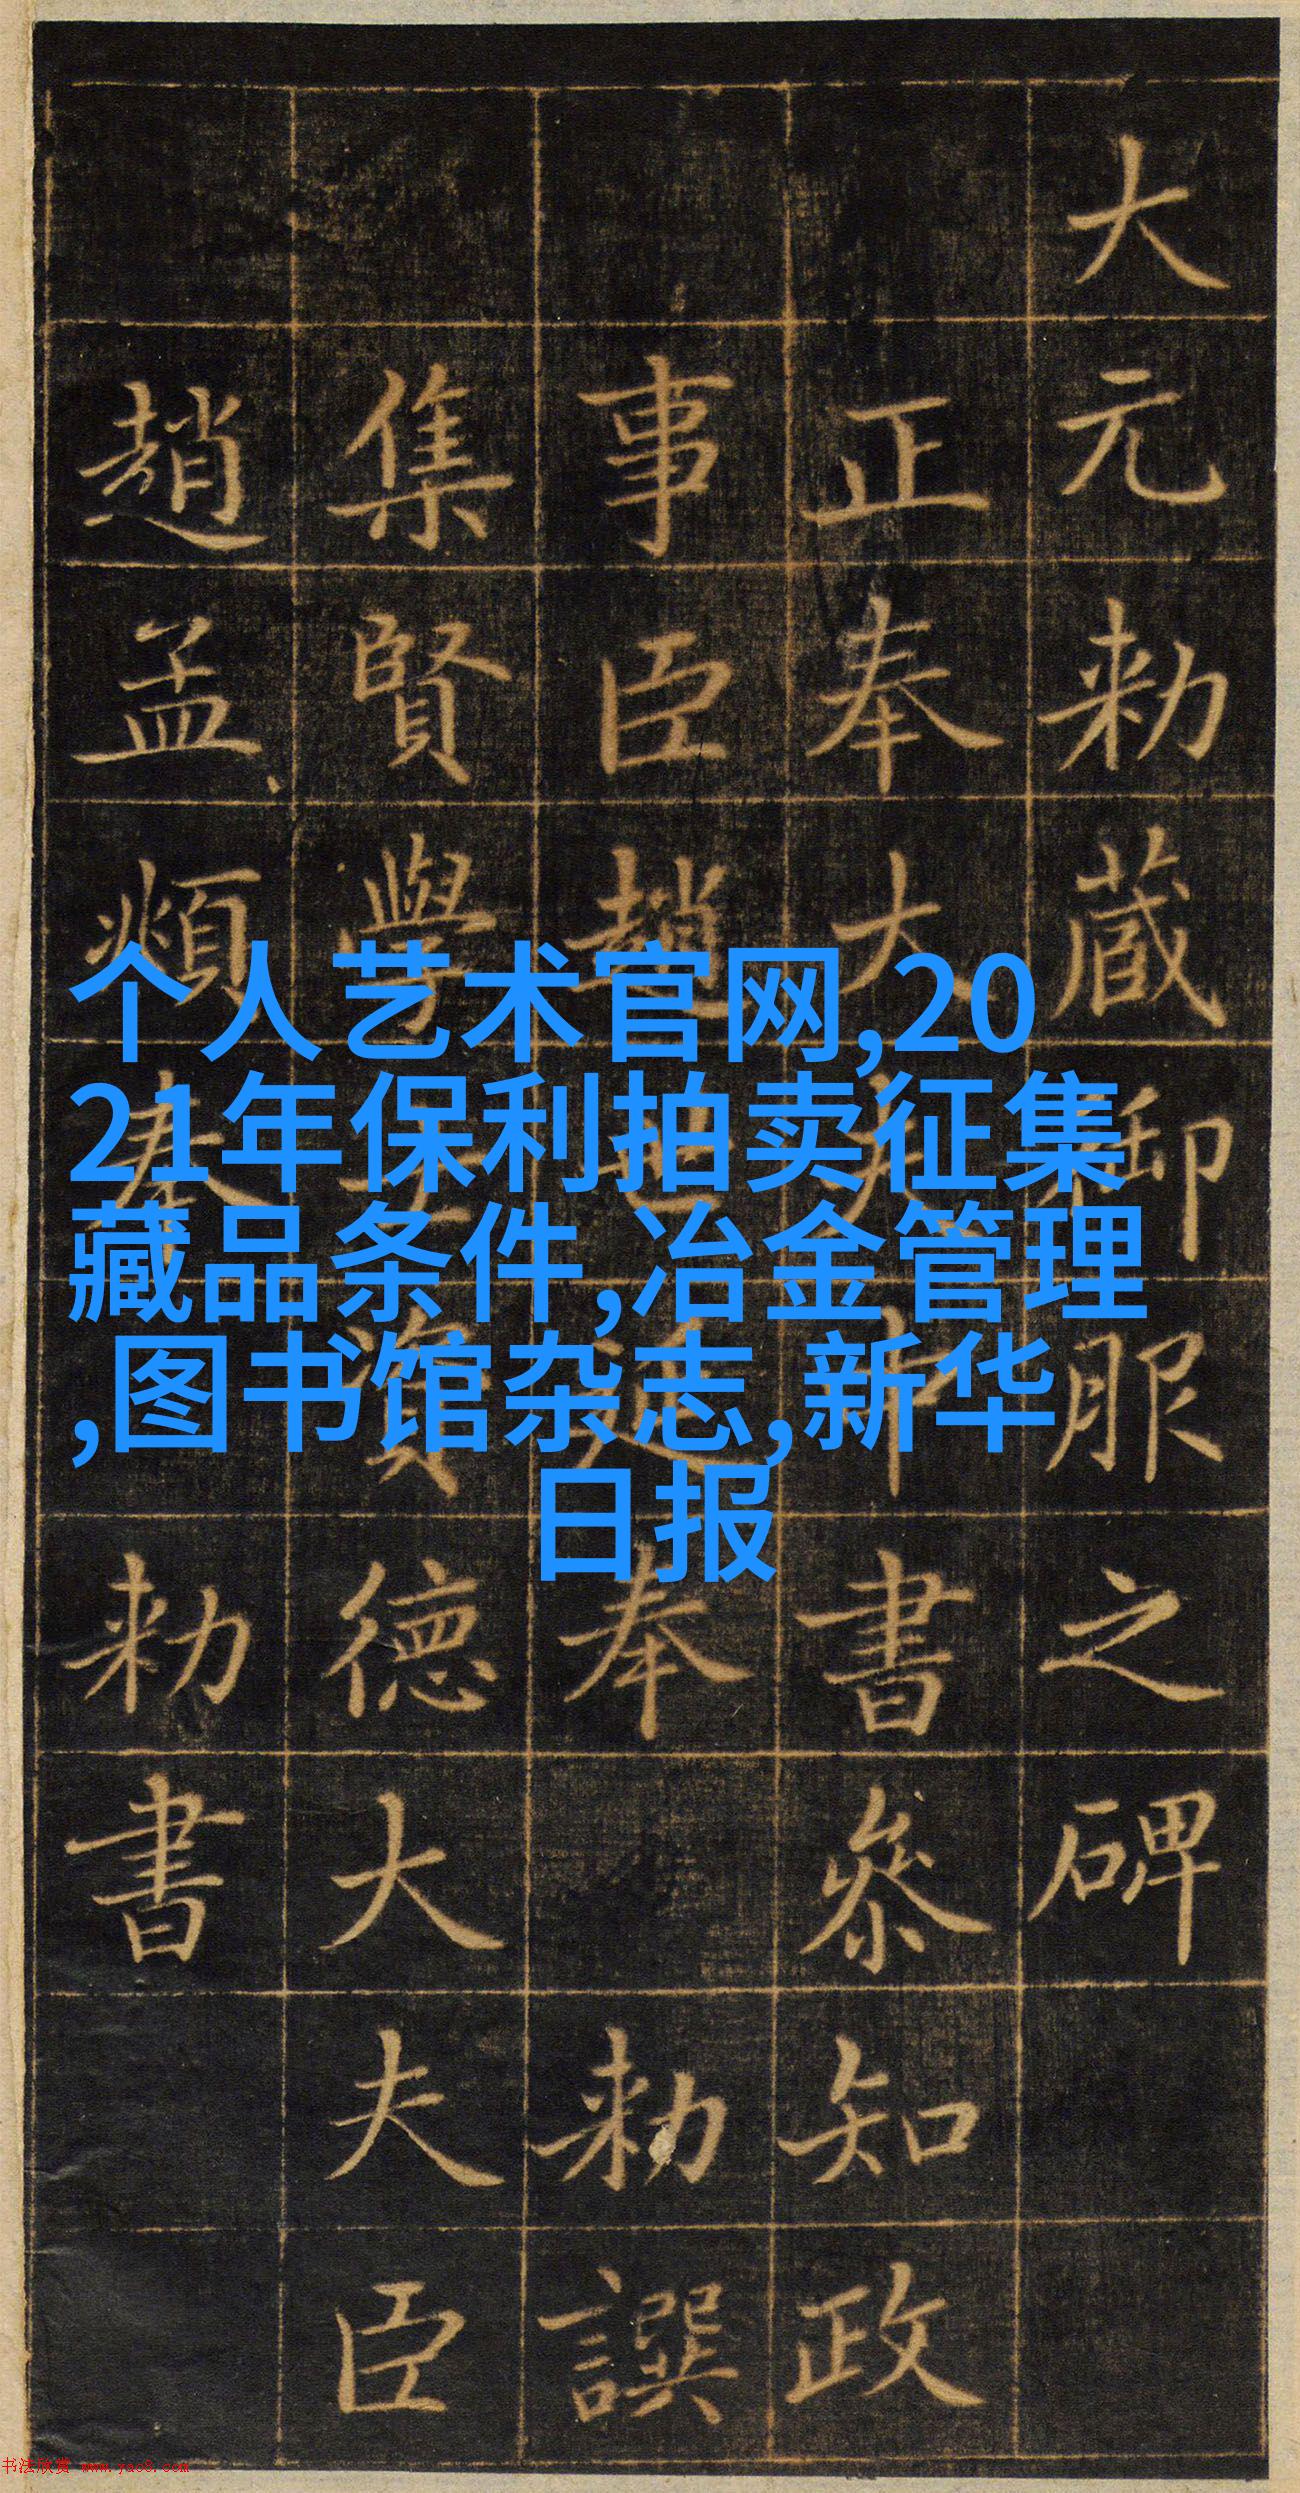 大元勑蔵御服之碑
正奉大夫中書叅知政
事臣趙世延奉勑譔
集賢學士資德大夫臣
趙孟頫奉勑書
个人艺术官网,20
21年保利拍卖征集
藏品条件,冶金管理
,图书馆杂志,新华
日报
书法欣赏 www.yac8.com